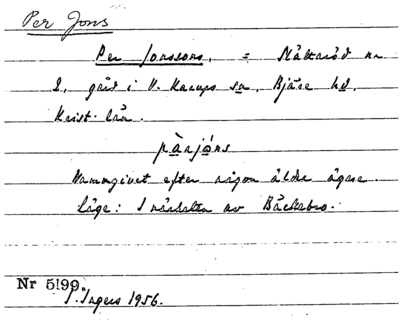 Per Jons
Per Jonssons, = Nåttaröd nr
2, gård i V. Karups sn, Bjäre hd,
Krist. län.
pàrjóns
Namngivet efter någon äldre ägare.
Läge: I nårdelen av Bäckabro.
Nr 5199.
I. Ingers 1956.